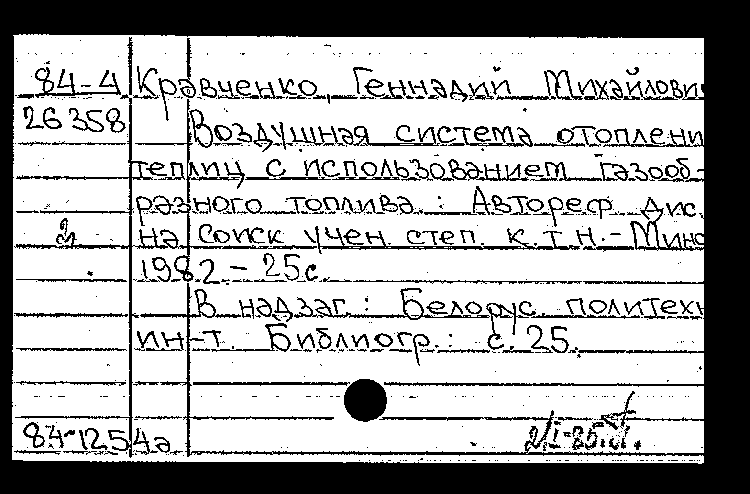 84-4 Кравченко, Геннадий Михайлови
26358 Воздушная система отоплени
теплиц с использованием газооб-
разного топлива : Автореф дис.
на соиск учен. степ. к.т.н. - Минс
1982. - 25 с.
В надзаг.: Белорус. политехн
ин-т. Библиогр.: с. 25.
84-1254а